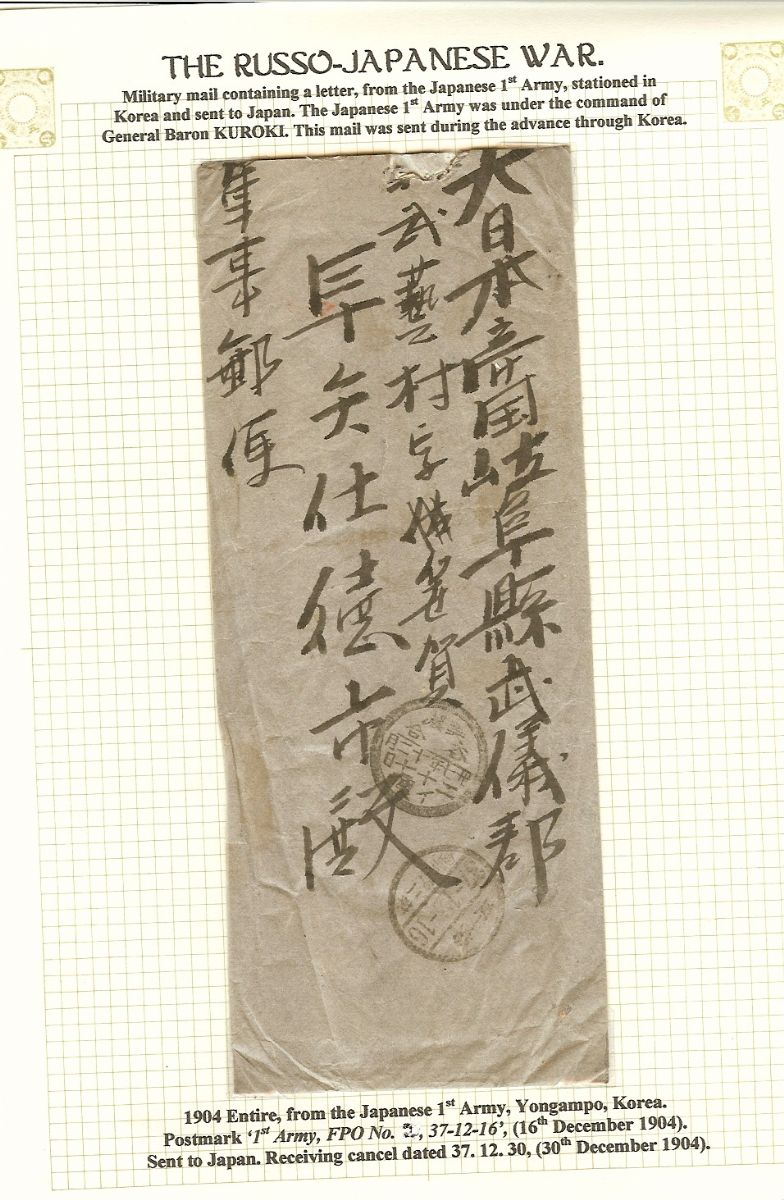 THE RUSSO-JAPANESE WAR.
Military mail containing a letter, from the Japanese 1st Army, stationed in
Korea and sent to Japan. The Japanese 1st Army was under the command of
General Baron KUROKI. This mail was sent during the advance through Korea.
大日本帝国岐阜縣武儀郡
武藝村字
阜矢仕徳市殿
軍事郵便
1904 Entire, from the Japanese 1st Army, Yongampo, Korea.
Postmark '1st Army, FPO No. 2, 37-12-16', (16th December 1904).
Sent to Japan. Receiving cancel dated 37. 12. 30, (30th December 1904).